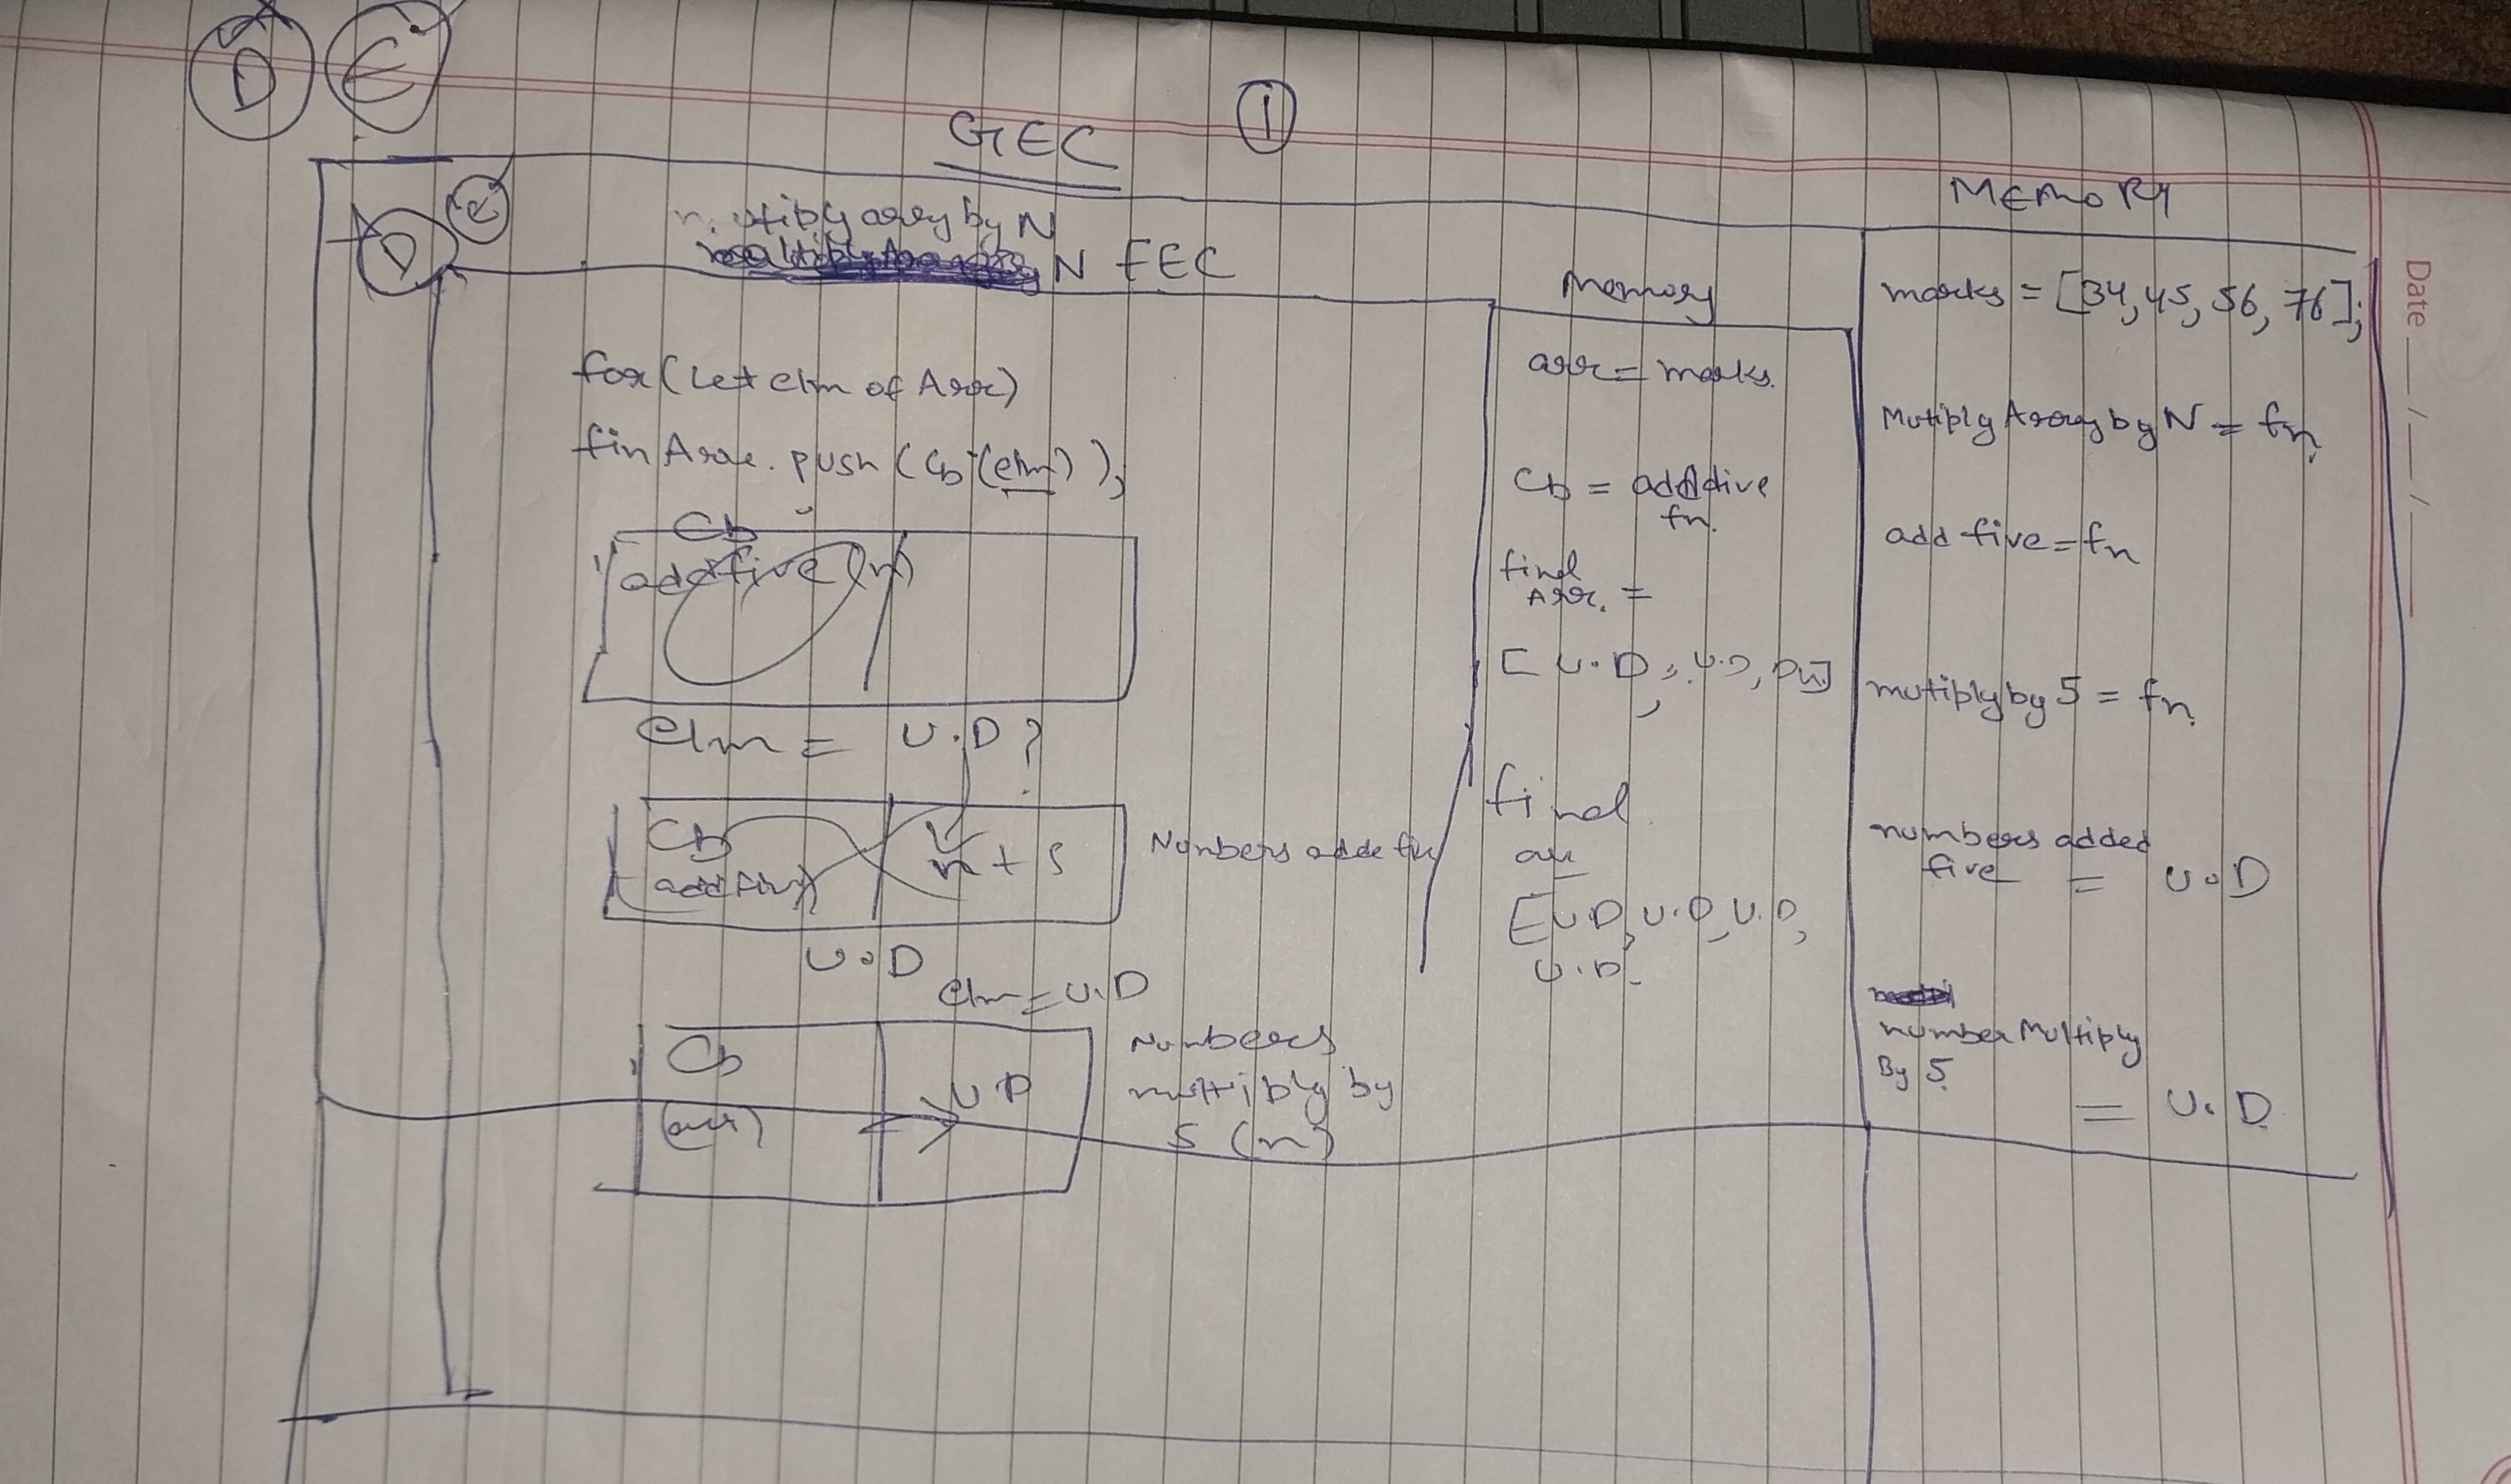 D E
GEC
1
MEMORY
D e
mutiply array by N
N FEC
for(Let elm of Arr)
finArr.push(Cb(elm));
Cb
addfive(n)
Elm = U.D?
Cb
addfive
n + 5
Numbers adde
U.D
elm = U.D
Cb
(arr)
U.D
Numbers
multiply by
5 (n)
Memory
arr = marks.
Cb = addive
fn.
final
Arr. =
[U.D, U.D,
final
arr
[U.D, U.D, U.D,
U.D.
marks = [34, 45, 56, 76];
Mutiply Array by N = fn.
add five = fn
mutiply by 5 = fn.
numbers added
five = U.D
number Multiply
By 5.
= U.D.
Date ___/___/___